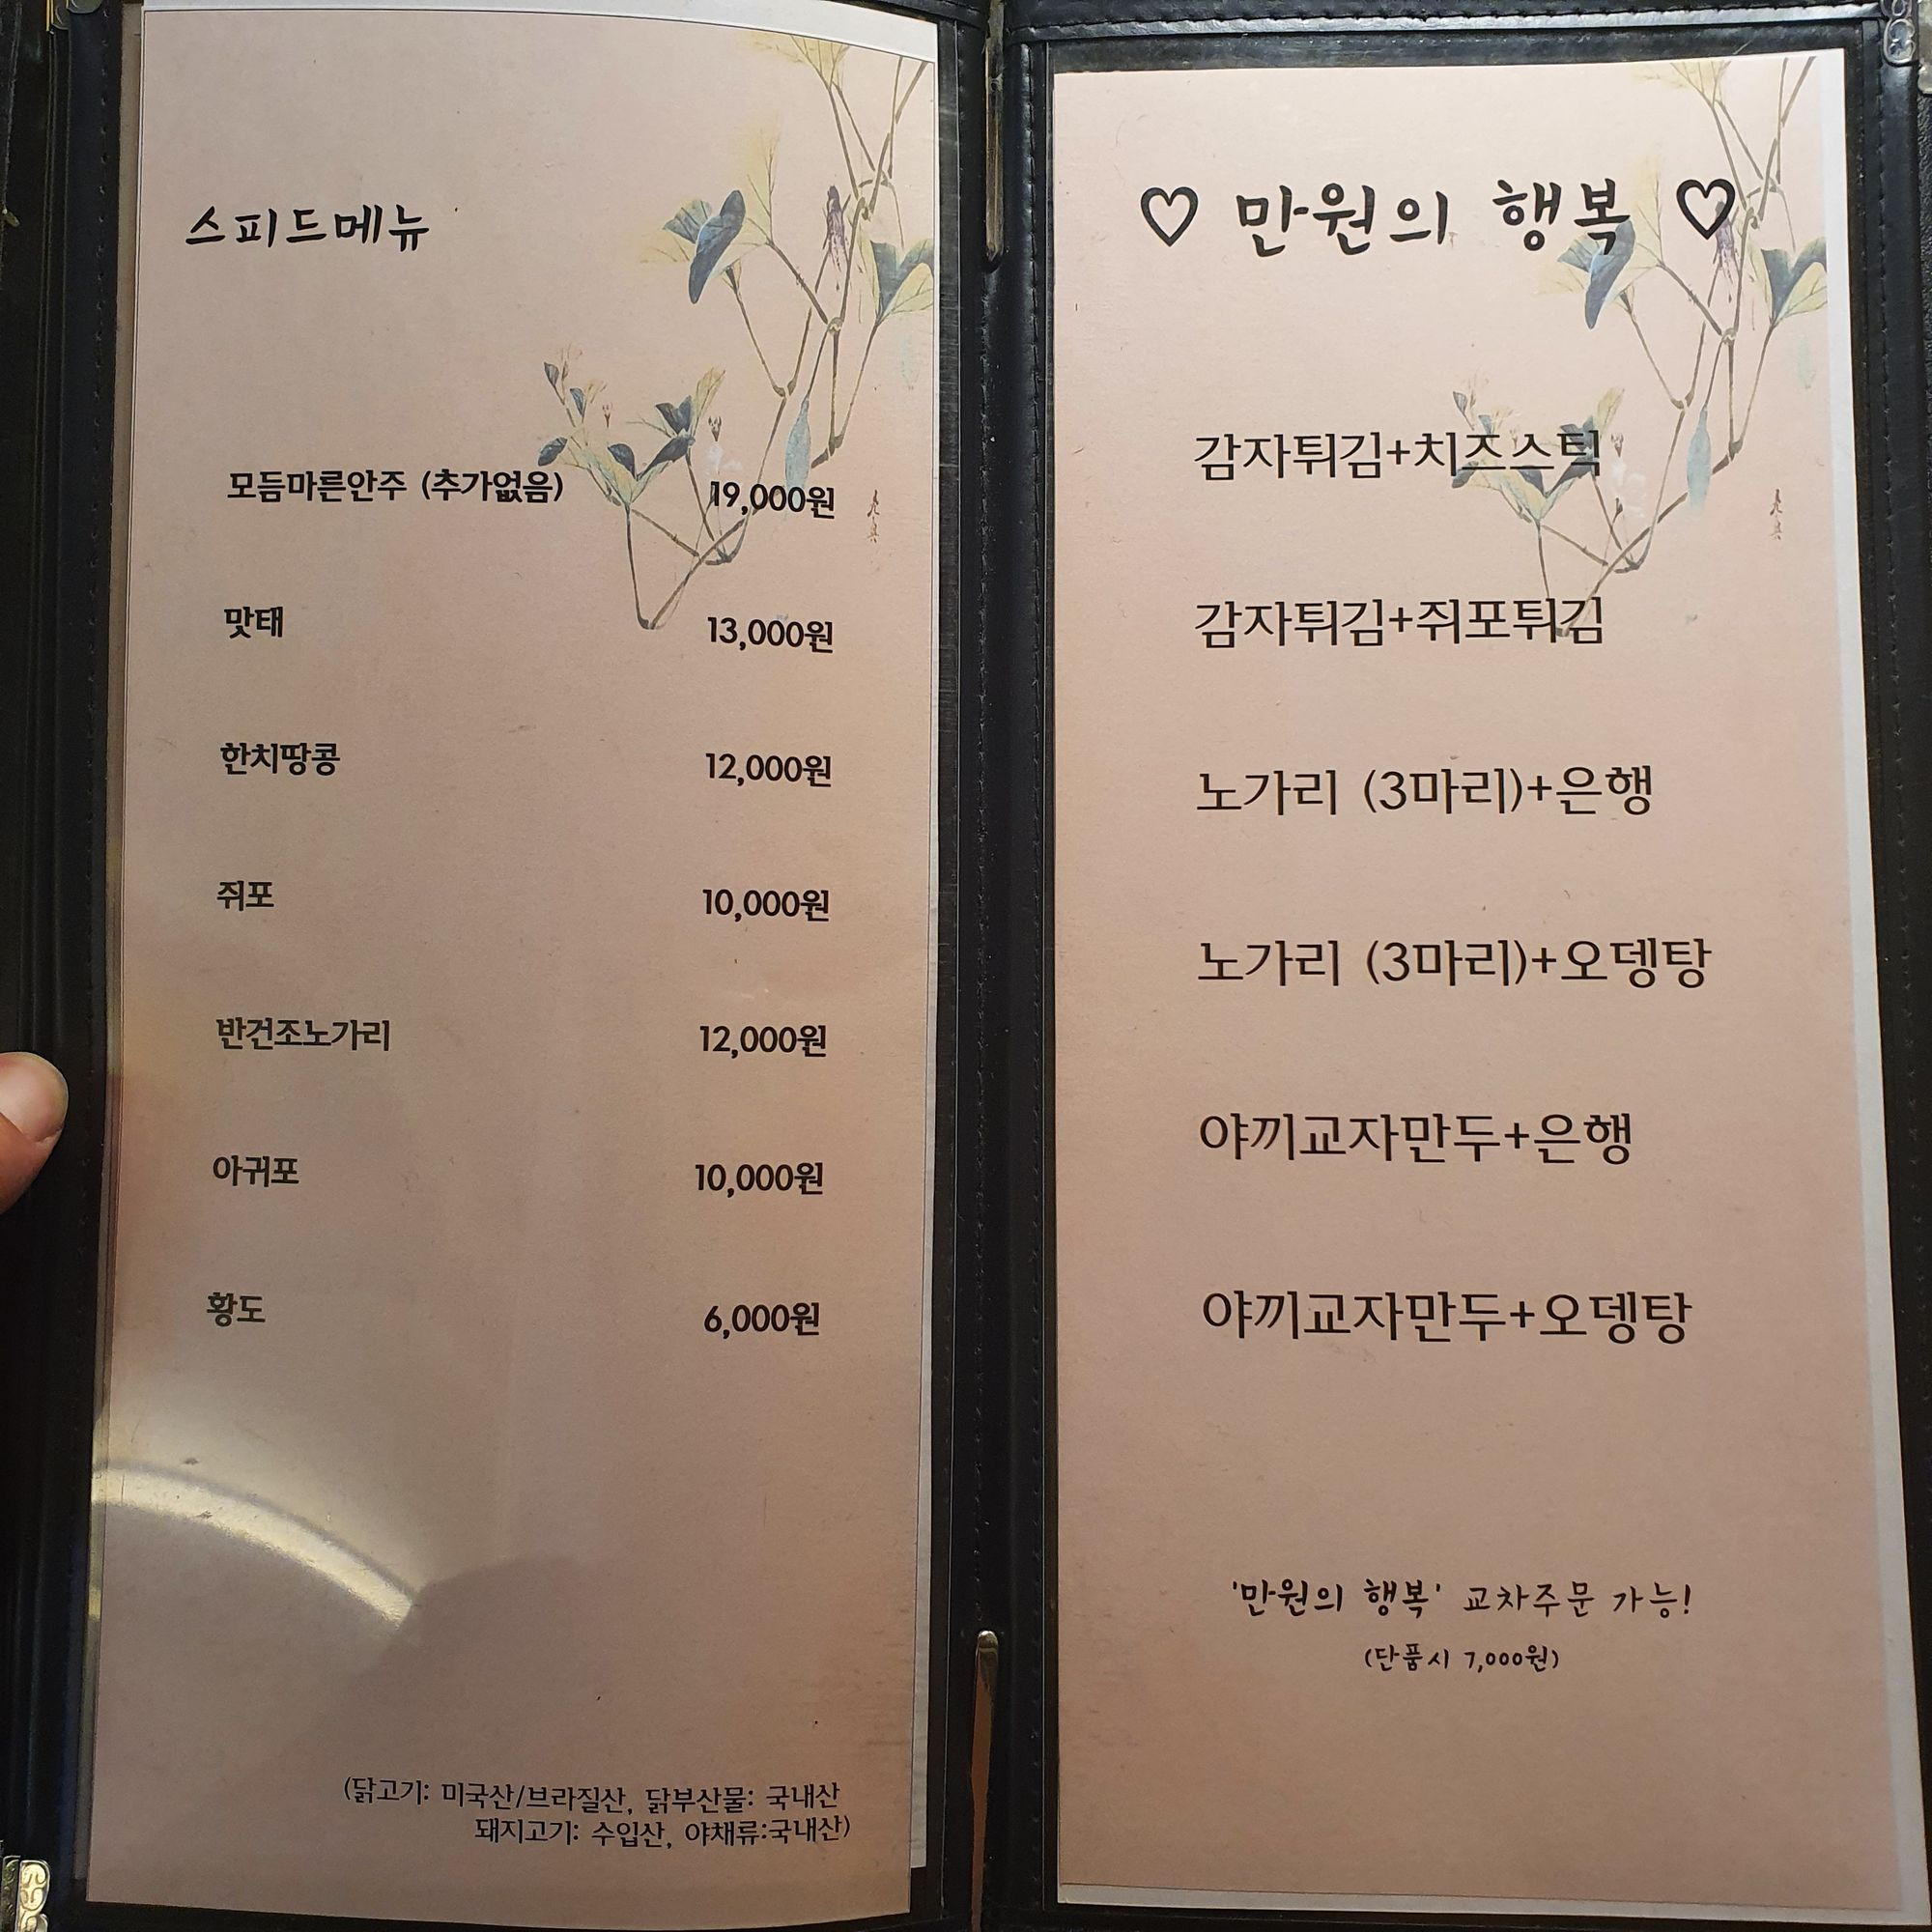 스피드메뉴
모듬마른안주 (추가없음) 19,000원
맛태 13,000원
한치땅콩 12,000원
쥐포 10,000원
반건조노가리 12,000원
아귀포 10,000원
황도 6,000원
(닭고기: 미국산/브라질산, 닭부산물: 국내산
돼지고기: 수입산, 야채류:국내산)
♡ 만원의 행복 ♡
감자튀김+치즈스틱
감자튀김+쥐포튀김
노가리 (3마리)+은행
노가리 (3마리)+오뎅탕
야끼교자만두+은행
야끼교자만두+오뎅탕
'만원의 행복' 교차주문 가능!
(단품시 7,000원)